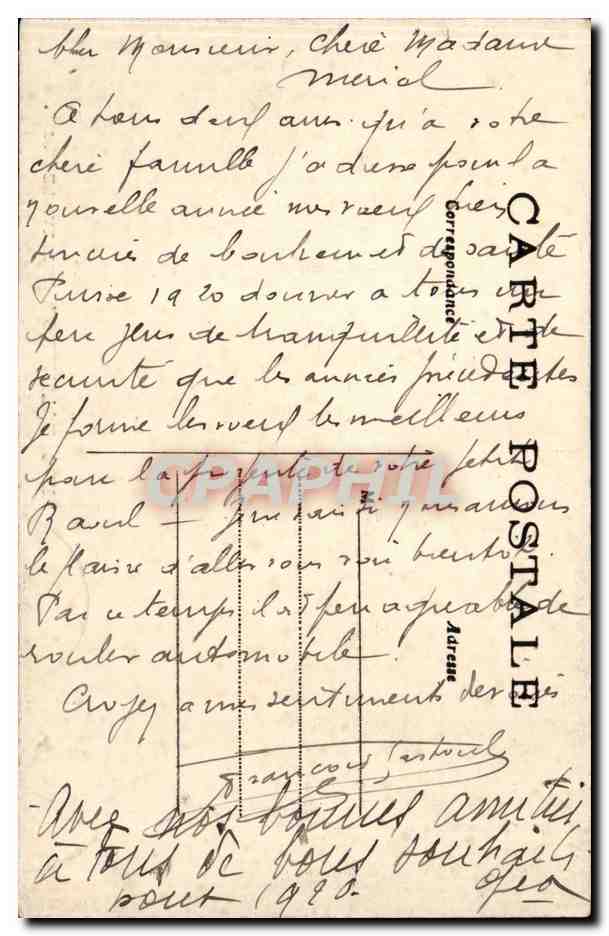 Cher Monsieur, Chère Madame
Meriol
A tous deux ainsi qu'a votre
chere famille j'adresse pour la
nouvelle année mes voeux bien
sincères de bonheur et de santé
Puisse 1920 donner a tous un
peu plus de tranquillité et de
securité que les années précédentes
Je forme les voeux les meilleurs
pour la de votre petit
Raoul — Je ne sais si nous aurons
le plaisir d'aller vous voir bientôt.
Par ce temps il est peu agreable de
rouler automobile.
Croyez a mes sentiments devoués
François
Avec nos bonnes amitiés
à tous de bons souhaits
pour 1920.
CARTE POSTALE
Correspondance
Adresse
M
CPAPHIL